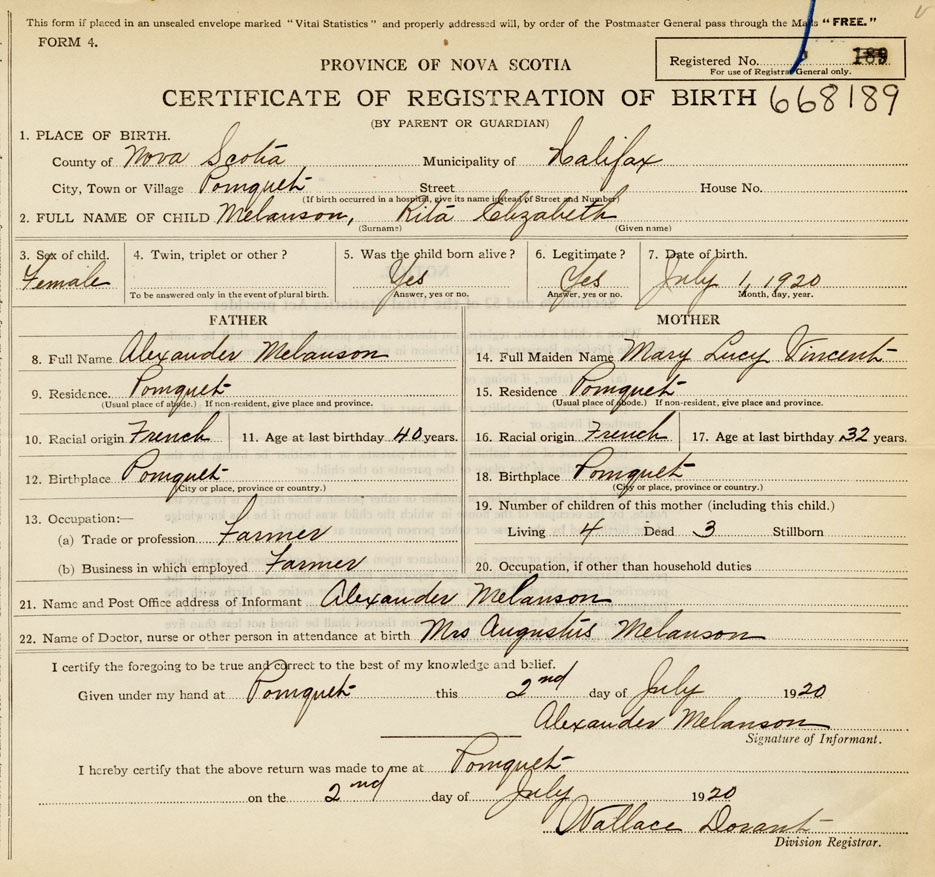 This form if placed in an unsealed envelope marked "Vital Statistics" and properly addressed will, by order of the Postmaster General pass through the Mails "FREE."
FORM 4.
Registered No. 189
For use of Registrar General only.
PROVINCE OF NOVA SCOTIA
CERTIFICATE OF REGISTRATION OF BIRTH 668189
(BY PARENT OR GUARDIAN)
1. PLACE OF BIRTH.
County of Nova Scotia Municipality of Halifax
City, Town or Village Pomquet Street House No.
(If birth occurred in a hospital, give its name instead of Street and Number)
2. FULL NAME OF CHILD Melanson, Rita Elizabeth
(Surname) (Given name)
3. Sex of child. 4. Twin, triplet or other? 5. Was the child born alive? 6. Legitimate? 7. Date of birth.
Female Yes Yes July 1, 1920
To be answered only in the event of plural birth. Answer, yes or no. Answer, yes or no. Month, day, year.
FATHER MOTHER
8. Full Name Alexander Melanson 14. Full Maiden Name Mary Lucy Vincent
9. Residence. Pomquet 15. Residence Pomquet
(Usual place of abode.) If non-resident, give place and province. (Usual place of abode.) If non-resident, give place and province.
10. Racial origin French 11. Age at last birthday 40 years. 16. Racial origin French 17. Age at last birthday 32 years.
12. Birthplace Pomquet 18. Birthplace Pomquet
(City or place, province or country.) (City or place, province or country.)
13. Occupation:— 19. Number of children of this mother (including this child.)
(a) Trade or profession Farmer Living 4 Dead 3 Stillborn
(b) Business in which employed Farmer 20. Occupation, if other than household duties
21. Name and Post Office address of Informant Alexander Melanson
22. Name of Doctor, nurse or other person in attendance at birth Mrs Augustus Melanson
I certify the foregoing to be true and correct to the best of my knowledge and belief.
Given under my hand at Pomquet this 2nd day of July 1920
Alexander Melanson
Signature of Informant.
I hereby certify that the above return was made to me at Pomquet
on the 2nd day of July 1920
Wallace Dorant
Division Registrar.